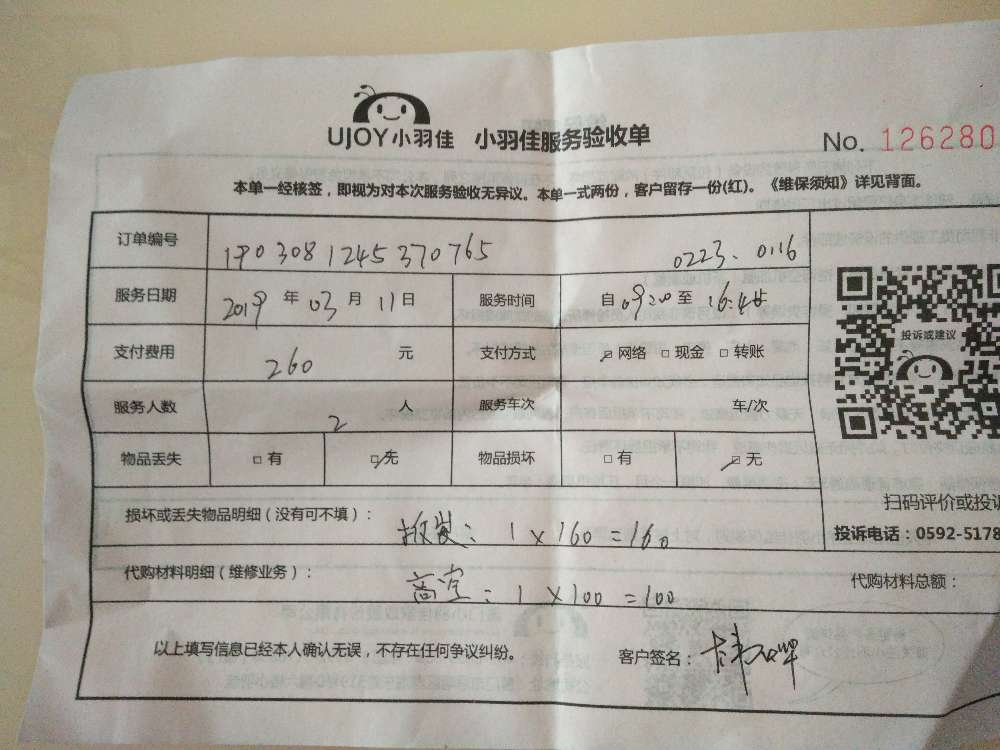 UJOY小羽佳 小羽佳服务验收单
No. 126280
本单一经核签，即视为对本次服务验收无异议。本单一式两份，客户留存一份(红)。《维保须知》详见背面。
订单编号 190308 1245 370765 0223、0116
服务日期 2019 年 03 月 11 日 服务时间 自 0920 至
支付费用 260 元 支付方式 网络 □ 现金 □ 转账
服务人数 2 人 服务车次 车/次
物品丢失 □ 有 无 物品损坏 □ 有 无
投诉或建议
扫码评价或投诉
投诉电话：0592-5178
损坏或丢失物品明细（没有可不填）：
1×160=160
代购材料明细（维修业务）：
1×100=100
代购材料总额：
以上填写信息已经本人确认无误，不存在任何争议纠纷。
客户签名：